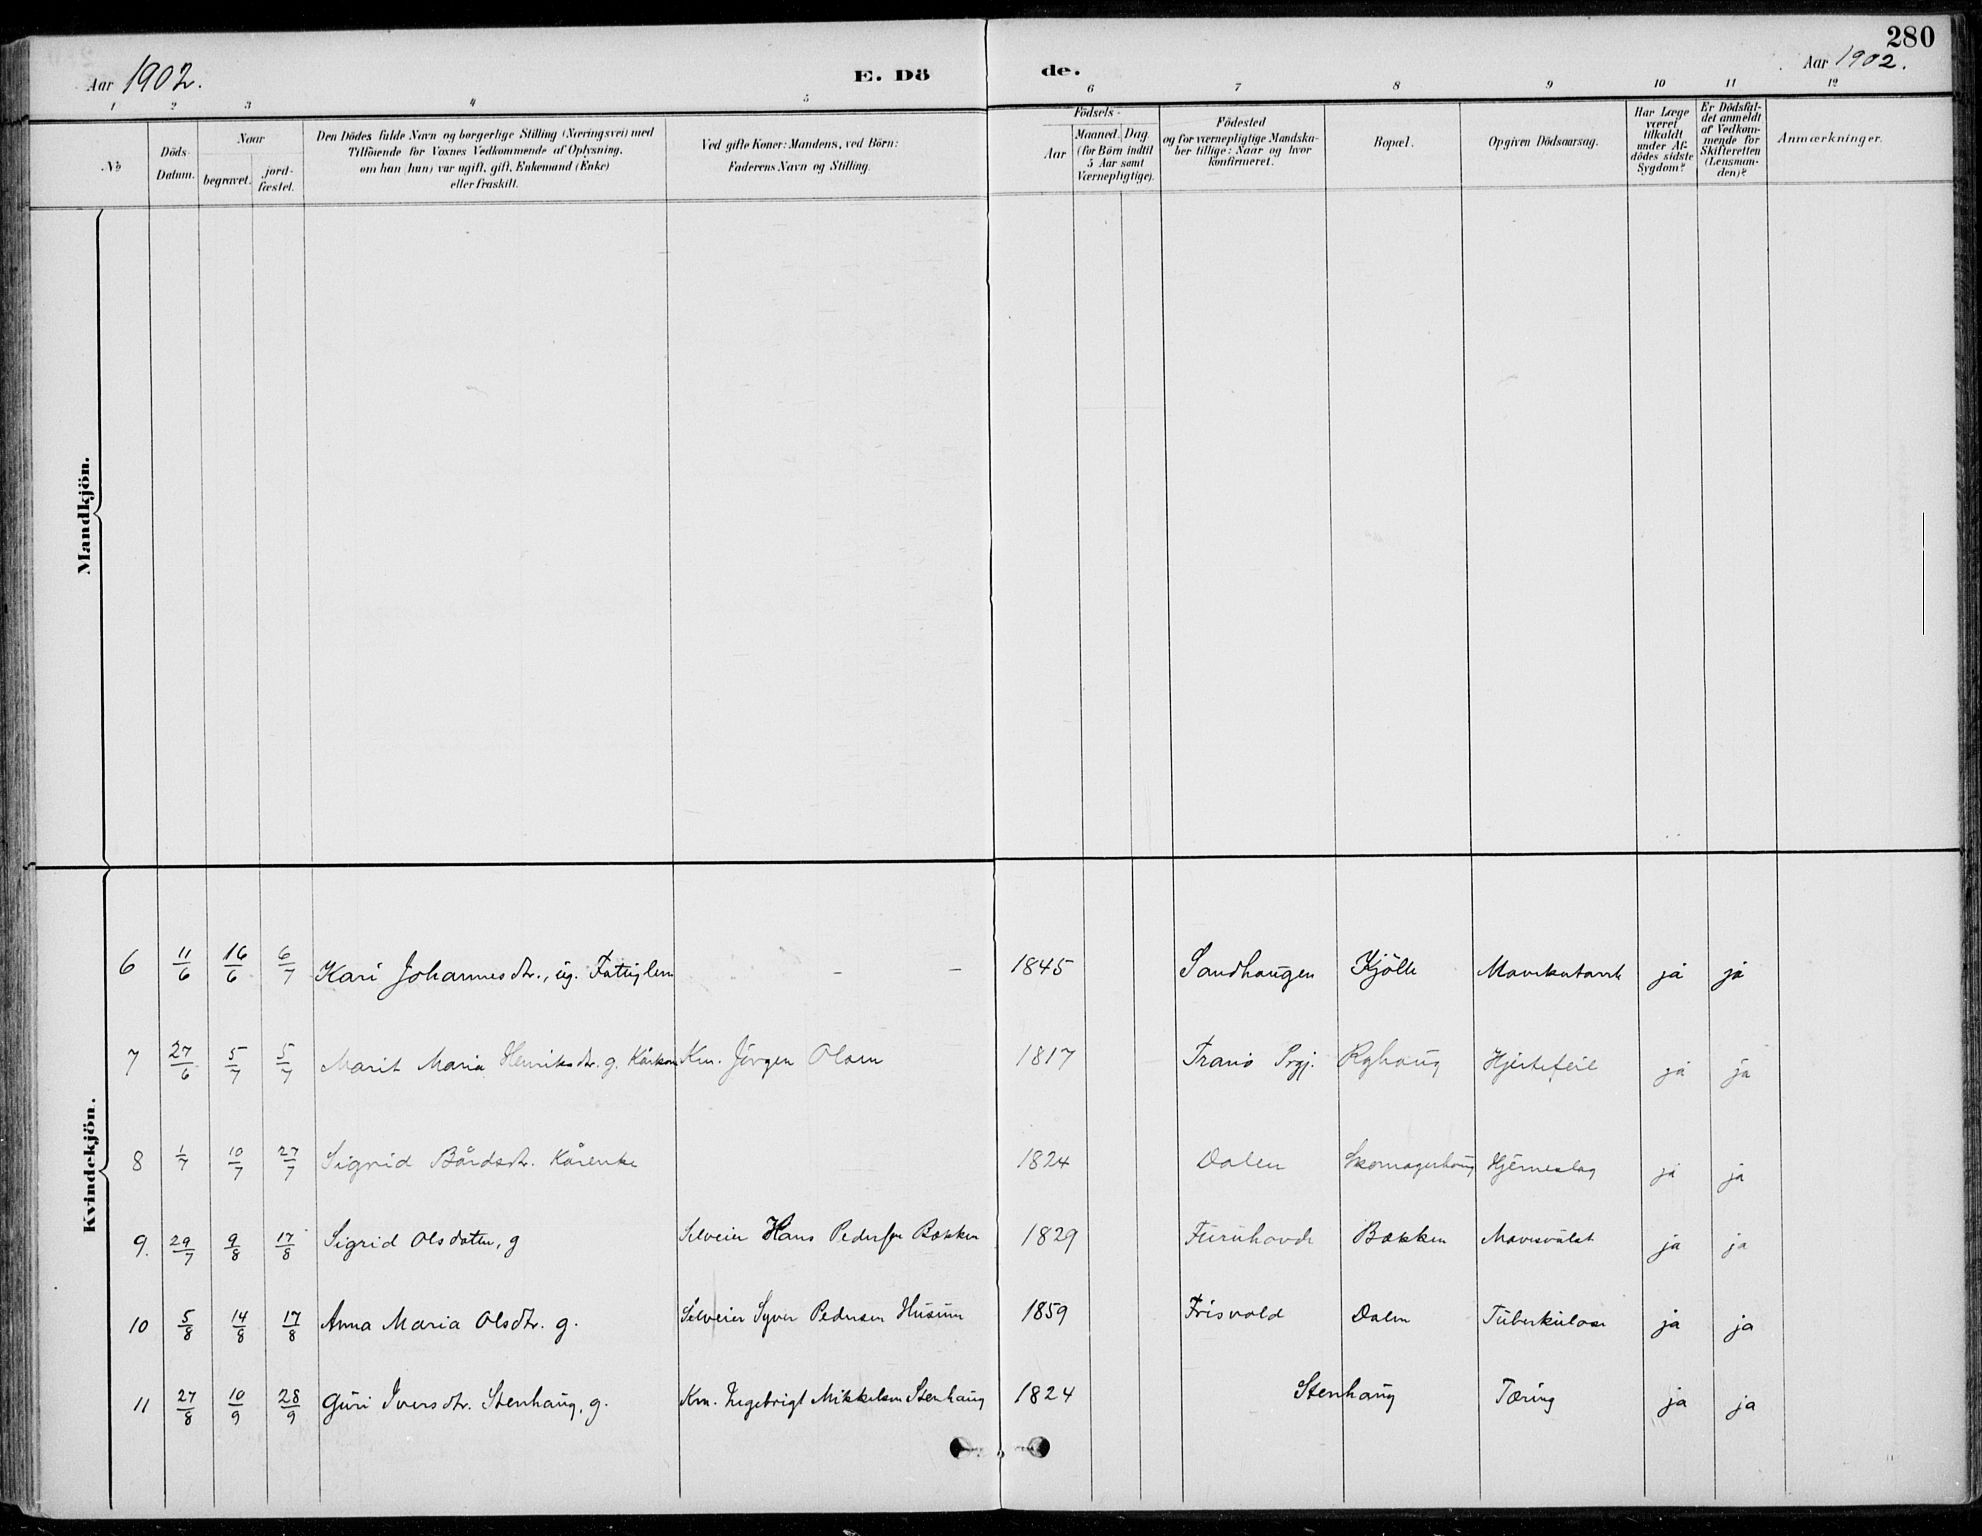 280
Aar 1902.
E. Dö
de.
Aar 1902.
1 2 3 4 5 6 7 8 9 10 11 12
No
Döds-
Datum.
Naar
begravet.
jord-
fæstet.
Den Dödes fulde Navn og borgerlige Stilling (Næringsvei) med
Tilföiende for Voxnes Vedkommende af Oplysning,
om han (hun) var ugift, gift, Enkemand (Enke)
eller fraskilt.
Ved gifte Koner: Mandens, ved Börn:
Faderens Navn og Stilling.
Födsels-
Aar
Maaned. Dag.
(for Börn indtil
5 Aar samt
Værnepligtige).
Födested
og for værnepligtige Mandska-
ber tillige: Naar og hvor
konfirmeret.
Bopæl.
Opgiven Dödsaarsag.
Har Læge
været
tilkaldt
under Af-
dödes sidste
Sygdom?
Er Dödsfal-
det anmeldt
af Vedkom-
mende for
Skifteretten
(Lensman-
den)?
Anmærkninger.
Mandkjön.
Kvindekjön.
6 11/6 16/6 6/7 Kari Johannesdtr., ug. Fattiglem - - 1845 Sandhaugen Kjölle Mavekatarrh ja ja
7 27/6 5/7 5/7 Marit Maria Henriksdtr. g. Kårkone Km. Jörgen Olsen 1817 Tranö Prgj. Ryhaug Hjertefeil ja ja
8 1/7 10/7 27/7 Sigrid Bårdsdtr. Kårenke 1824 Dalen Skomagerhaug Hjerneslag ja ja
9. 29/7 9/8 17/8 Sigrid Olsdatter, g Selveier Hans Pedersen Bakken 1829 Furuhovde Bakken Mavesvulst ja ja
10 5/8 14/8 17/8 Anna Maria Olsdtr. g. Selveier Syver Pedersen Husum 1859 Frisvold Dalen Tuberkulose ja ja
11 27/8 10/9 28/9 Guri Iversdtr. Stenhaug, g. Km. Ingebrigt Mikkelsen Stenhaug 1824 Stenhaug Tæring ja ja